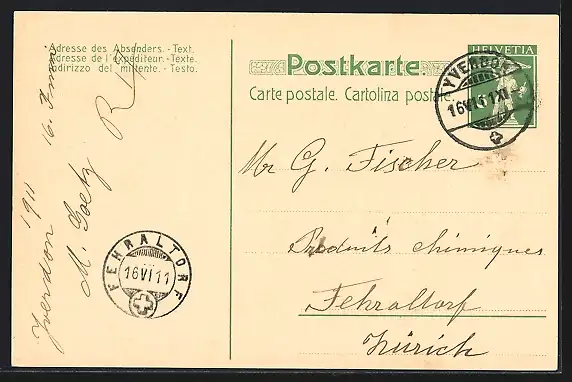 Adresse des Absenders. - Text.
Adresse de l'expéditeur. - Texte.
Indirizzo del mittente. - Testo.
Postkarte
Carte postale. Cartolina postale
HELVETIA
YVERDON
16 VI 11 XI
Mr G. Fischer
Produits chimiques
Fehraltorf
Zürich
Yverdon 1911 16. Juin
M. Goetz
FEHRALTORF
16 VI 11